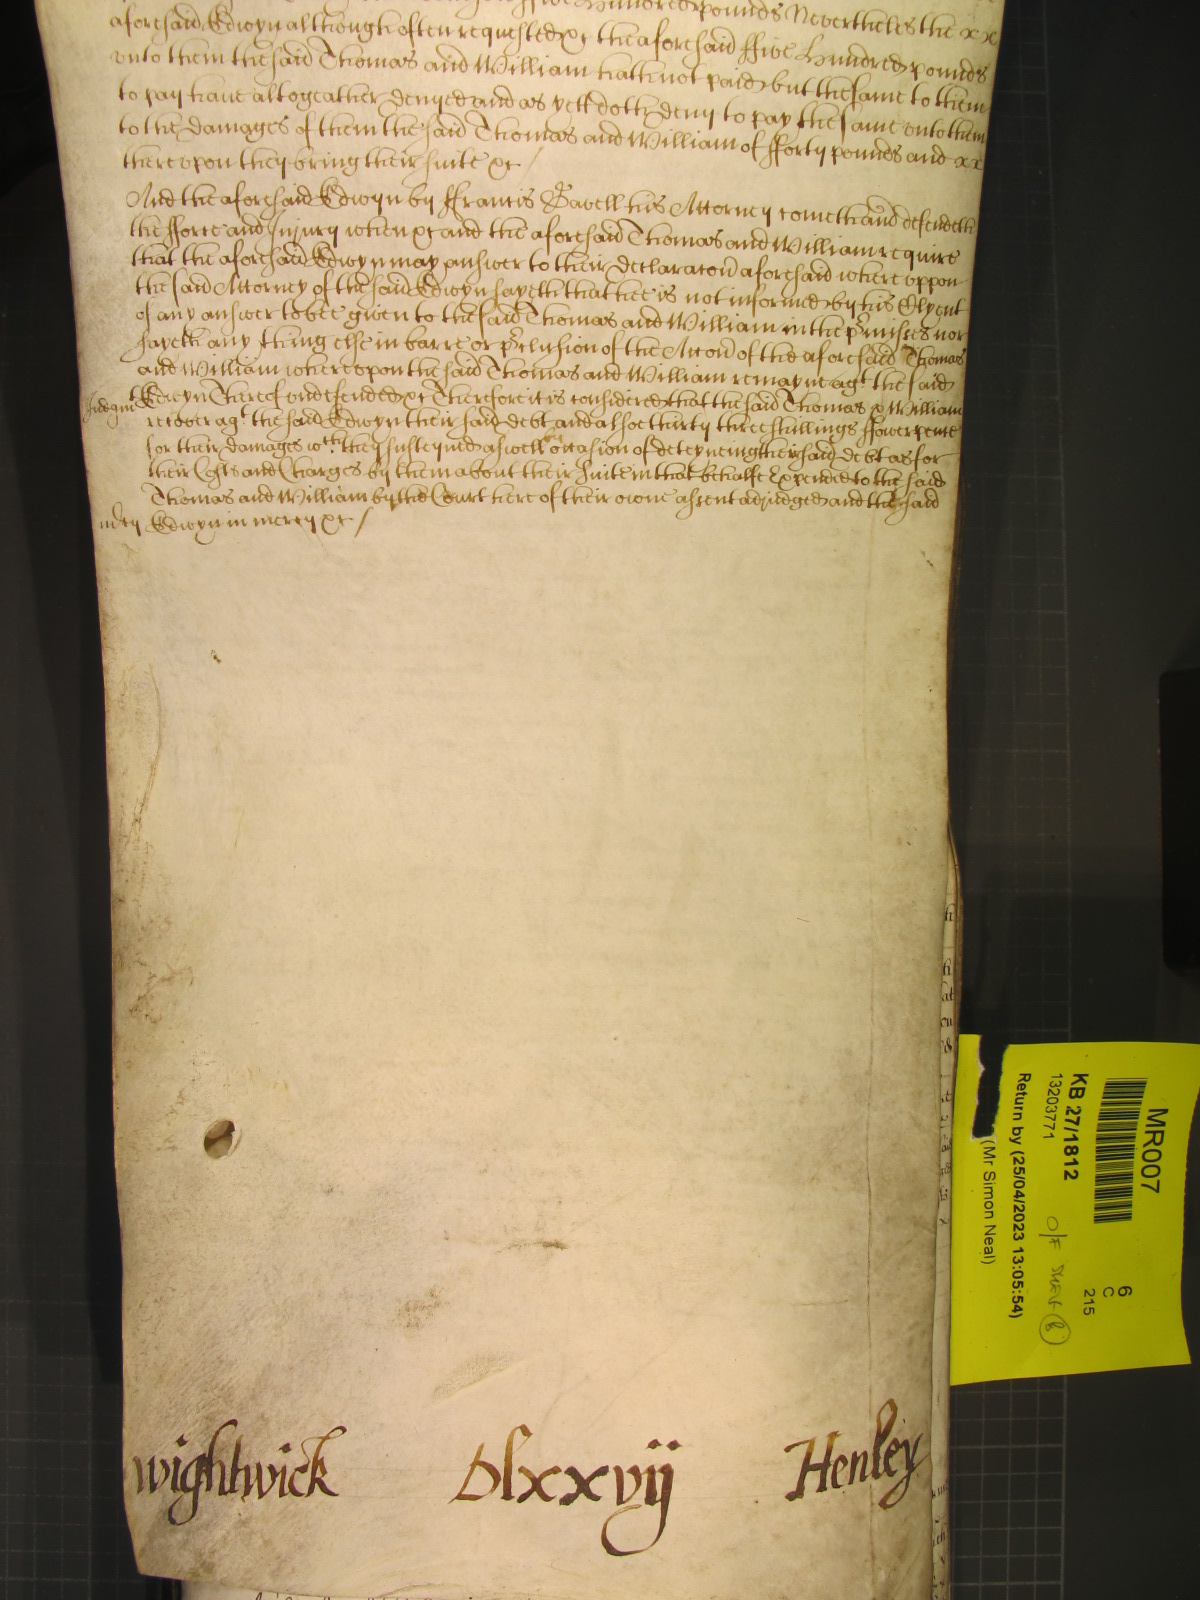 ffive Hundred pounds Nevertheles the
aforesaid Edwyn although often requested &c the aforesaid ffive Hundred pounds
unto them the said Thomas and William hath not paid but the same to them
to pay haue altogeather denyed and as yett doth deny to pay the same unto them
to the damages of them the said Thomas and William of fforty pounds and
thereupon they bring their suite &c /
And the aforesaid Edwyn by ffrancis Bavell his Attorney cometh and defendeth
the fforce and Injury when &c and the aforesaid Thomas and William require
that the aforesaid Edwyn may answer to their declaracon aforesaid whereuppon
the said Attorney of the said Edwyn sayeth that hee is not informed by his Clyent
of any answer to bee given to the said Thomas and William in the p'misses nor
sayeth any thing else in barre or p'clusion of the Accon of the aforesaid Thomas
and William whereupon the said Thomas and William remayne agt. the said
Judgmt Edwyn thereof undefended &c Therefore it is considered that the said Thomas & William
recover agt. the said Edwyn their said debt and alsoe thirty three shillings ffower pence
for their damages wch. they susteyned aswell occasion of deteyneing their said debt as for
their Costs and Charges by them about their Suite in that behalfe Expended to the said
Thomas and William by the Court here of their owne assent adjudged and the said
m'cy Edwyn in mercy &c /
wightwick Dlxxvij Henley
MR007
KB 27/1812
13203771
Return by (25/04/2023 13:05:54)
(Mr Simon Neal)
6
C
215
O/F